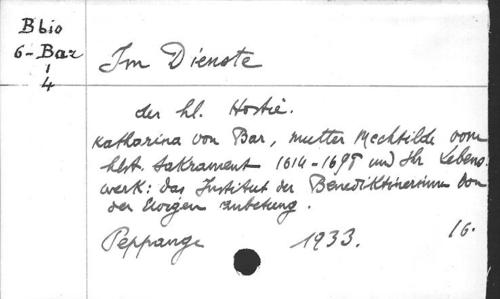 B bio
6-Bar
1
4
Im Dienste
der hl. Hostie.
Katharina von Bar, Mutter Mechtilde vom
hlst. Sakrament 1614-1698 und ihr Lebens
werk: das Institut der Benediktinerinnen von
der Ewigen Anbetung.
Peppange 1933. 16.